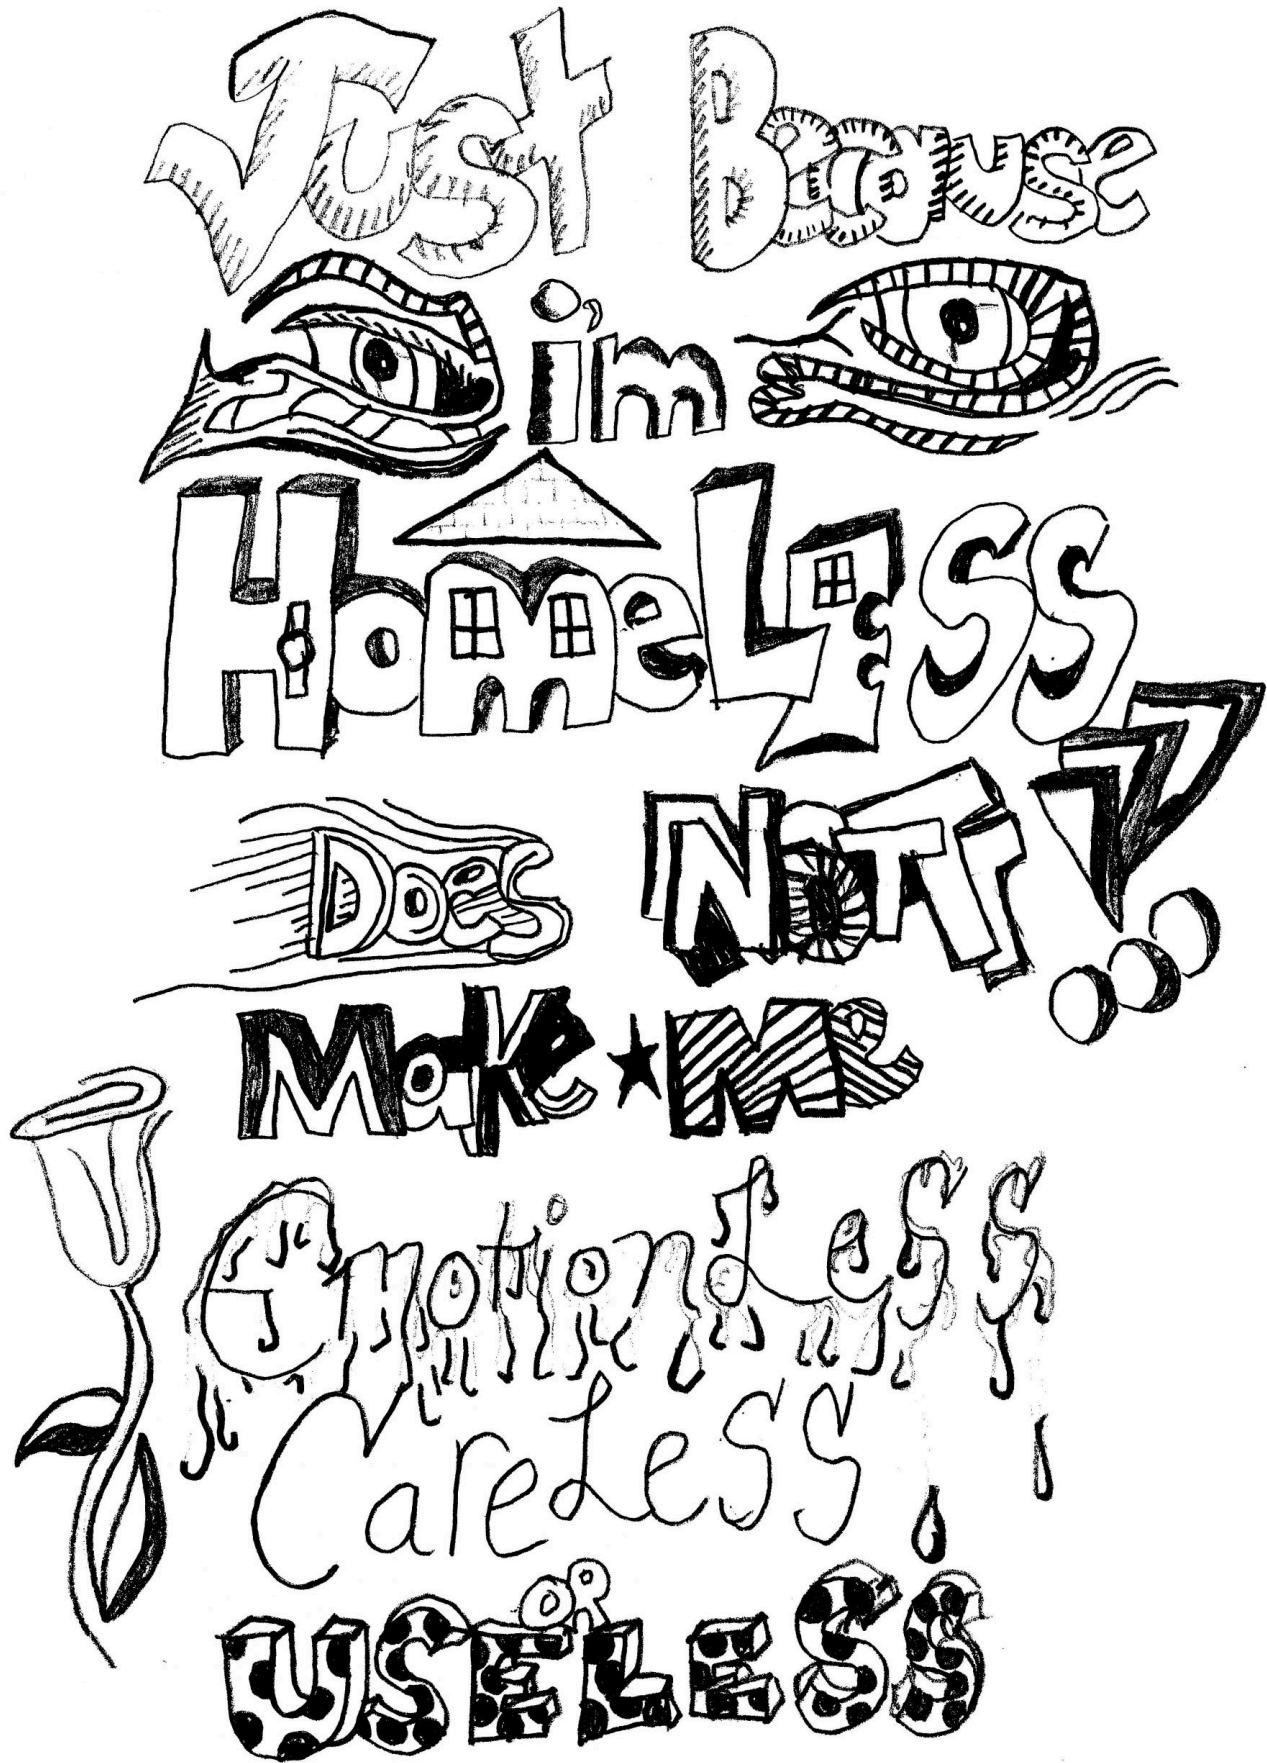 Just Because
i'm
HomeLESS
Does NOT!!!
Make Me
EmotionLeSS
CareLeSS
OR
USELESS